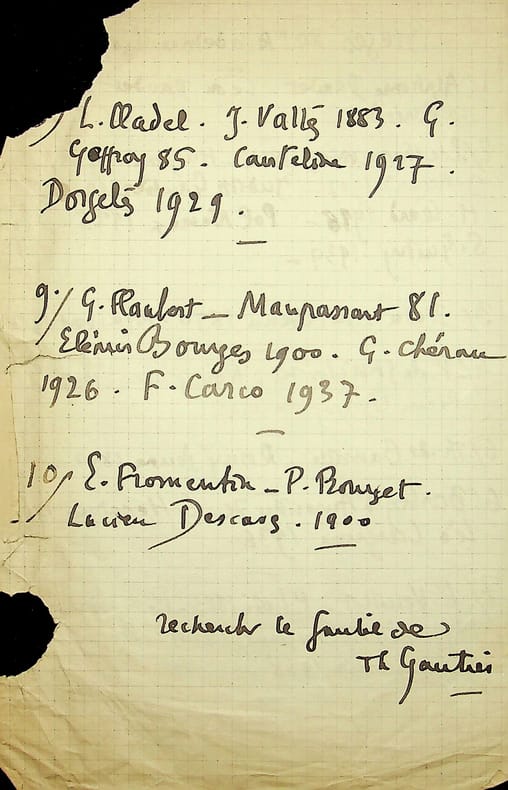 / L. Cladel. J. Vallès 1883. G.
Geffroy 85. Courteline 1927.
Dorgelès 1929.
9°/ G. Flaubert - Maupassant 81.
Elémir Bourges 1900. G. Chérau
1926. F. Carco 1937.
10/ E. Fromentin - P. Bourget.
Lucien Descaves. 1900
rechercher le fauteuil de
Th Gautier